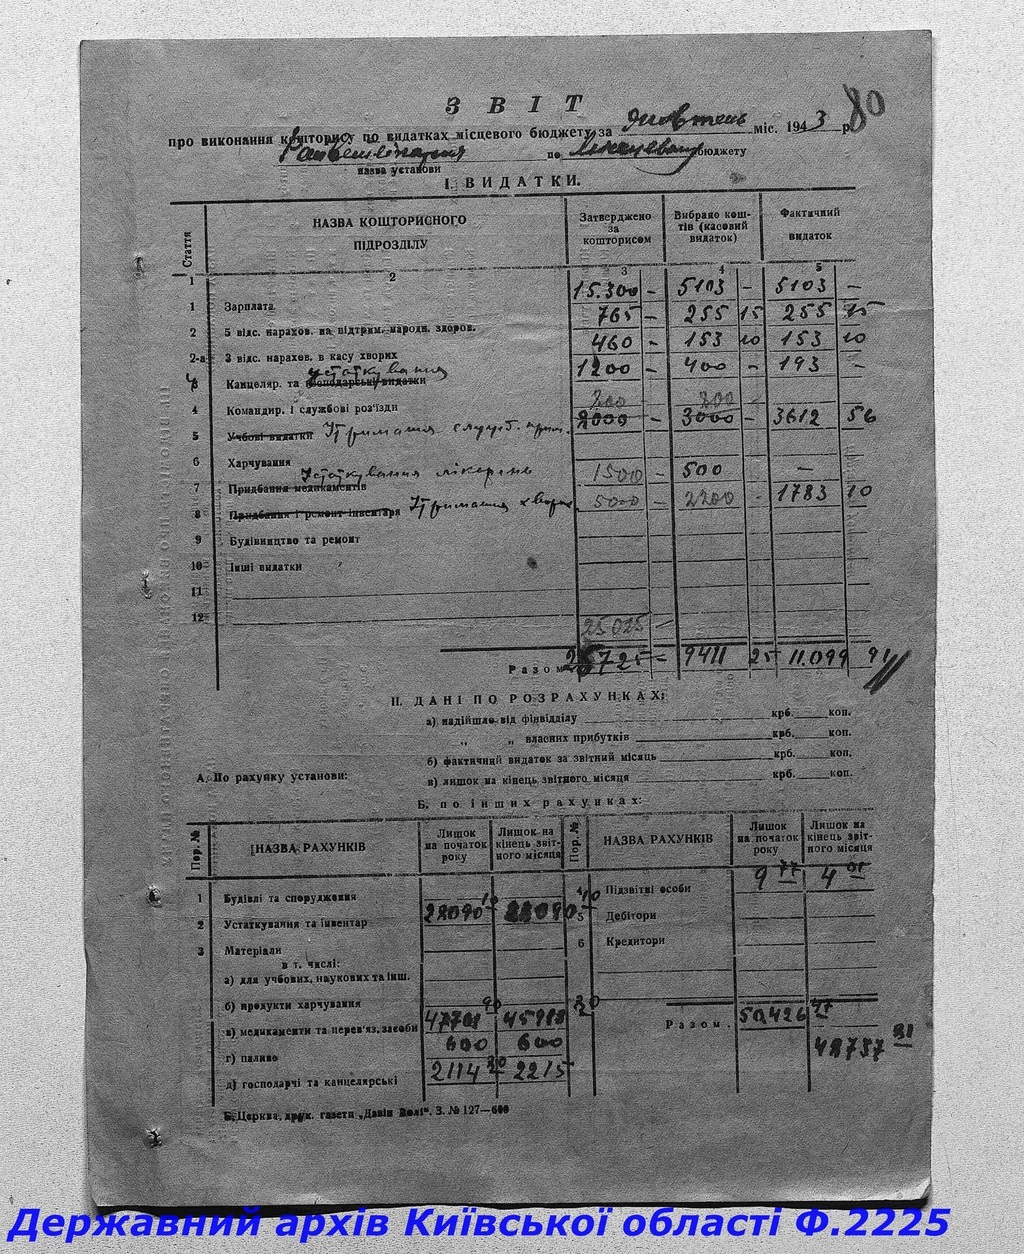 З В І Т
80
про виконання кошторису по видатках місцевого бюджету за жовтень міс. 1943 р.
по бюджету
назва установи
І. ВИДАТКИ.
Стаття
НАЗВА КОШТОРИСНОГО ПІДРОЗДІЛУ
Затверджено за кошторисом
Вибрано коштів (касовий видаток)
Фактичний видаток
1 2 3 4 5
1 Зарплата 15.300 – 5103 – 5103 –
2 5 відс. нарахов. на підтрим. народн. здоров. 765 – 255 15 255 15
2-а 3 відс. нарахов. в касу хворих 460 – 153 10 153 10
3 Канцеляр. та господарські видатки устаткування 1200 – 400 – 193 –
4 Командир. і службові роз'їзди 200 – 200 –
5 Учбові видатки Утримання служб. прим. 2000 – 3000 – 3612 56
6 Харчування
7 Придбання медикаментів Устаткування лікарень 1500 – 500 –
8 Придбання і ремонт інвентаря Утримання хворих 5000 – 2200 – 1783 10
9 Будівництво та ремонт
10 Інші видатки
11
12
25 025 –
Разом 25725 – 9411 25 11.099 91
ІІ. ДАНІ ПО РОЗРАХУНКАХ:
а) надійшло від фінвідділу крб. коп.
„ „ власних прибутків крб. коп.
б) фактичний видаток за звітний місяць крб. коп.
А. По рахунку установи:
в) лишок на кінець звітного місяця крб. коп.
Б. по інших рахунках:
Пор. №
НАЗВА РАХУНКІВ
Лишок на початок року
Лишок на кінець звітного місяця
Пор. №
НАЗВА РАХУНКІВ
Лишок на початок року
Лишок на кінець звітного місяця
1 Будівлі та спорудження
4 Підзвітні особи 9 77 4 01
2 Устаткування та інвентар
5 Дебітори
3 Матеріали
6 Кредитори
в т. числі:
а) для учбових, наукових та інш.
б) продукти харчування
в) медикаменти та перев'яз. засоби
Разом. 50.426
г) паливо 600 600
48737
д) господарчі та канцелярські 2114 2215
Б. Церква, друк. газети „Дзвін Волі". З. № 127—600
Державний архів Київської області Ф.2225